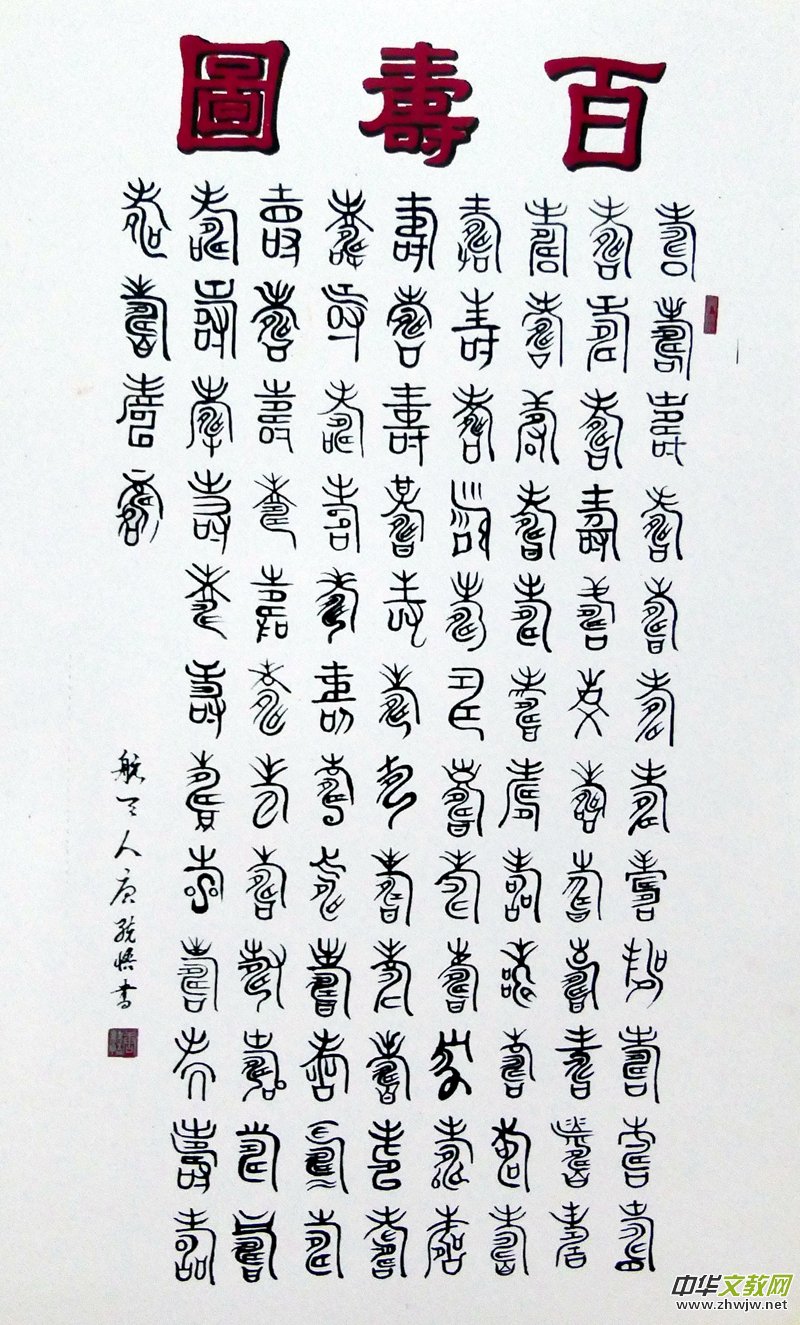 百壽圖
壽壽壽壽壽壽壽壽壽壽壽壽
壽壽壽壽壽壽壽壽壽壽壽壽
壽壽壽壽壽壽壽壽壽壽壽壽
壽壽壽壽壽壽壽壽壽壽壽壽
壽壽壽壽壽壽壽壽壽壽壽壽
壽壽壽壽壽壽壽壽壽壽壽壽
壽壽壽壽壽壽壽壽壽壽壽壽
壽壽壽壽壽壽壽壽壽壽壽壽
壽壽壽壽
航天人唐悟書
中华文教网
www.zhwjw.net